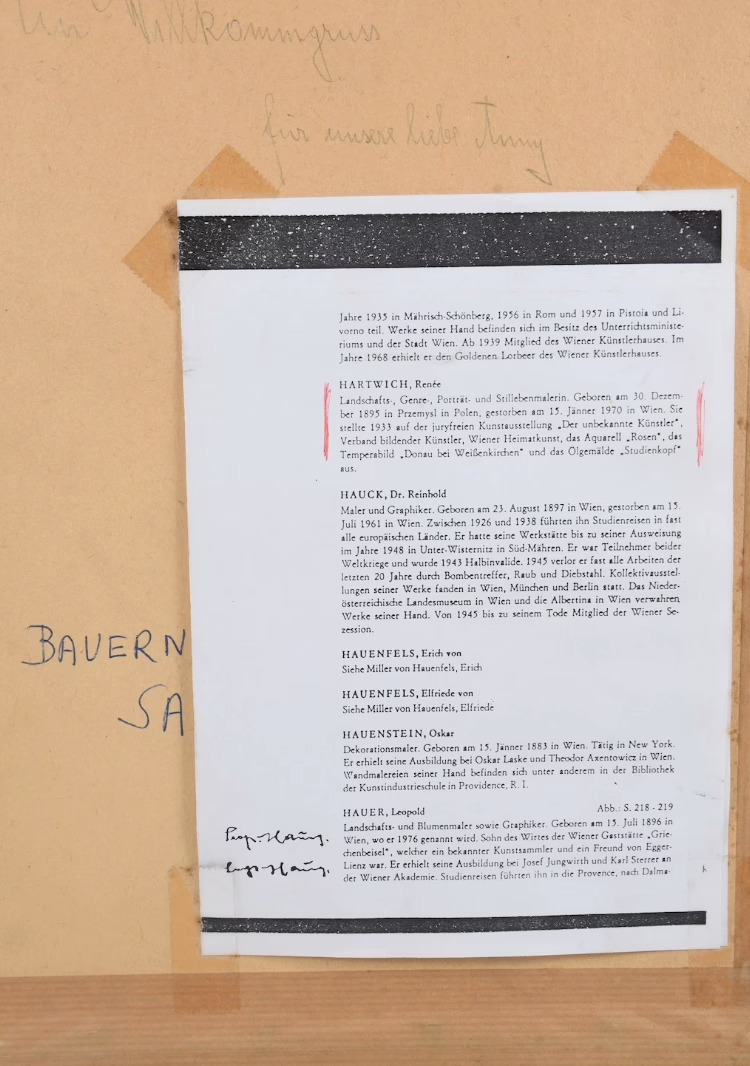 Ein Willkommgruss
für unsere liebe Anny
Jahre 1935 in Mährisch-Schönberg, 1956 in Rom und 1957 in Pistoia und Li-
vorno teil. Werke seiner Hand befinden sich im Besitz des Unterrichtsministe-
riums und der Stadt Wien. Ab 1939 Mitglied des Wiener Künstlerhauses. Im
Jahre 1968 erhielt er den Goldenen Lorbeer des Wiener Künstlerhauses.
HARTWICH, Renée
Landschafts-, Genre-, Porträt- und Stillebenmalerin. Geboren am 30. Dezem-
ber 1895 in Przemysl in Polen, gestorben am 15. Jänner 1970 in Wien. Sie
stellte 1933 auf der juryfreien Kunstausstellung „Der unbekannte Künstler",
Verband bildender Künstler, Wiener Heimatkunst, das Aquarell „Rosen", das
Temperabild „Donau bei Weißenkirchen" und das Ölgemälde „Studienkopf"
aus.
HAUCK, Dr. Reinhold
Maler und Graphiker. Geboren am 23. August 1897 in Wien, gestorben am 15.
Juli 1961 in Wien. Zwischen 1926 und 1938 führten ihn Studienreisen in fast
alle europäischen Länder. Er hatte seine Werkstätte bis zu seiner Ausweisung
im Jahre 1948 in Unter-Wisternitz in Süd-Mähren. Er war Teilnehmer beider
Weltkriege und wurde 1943 Halbinvalide. 1945 verlor er fast alle Arbeiten der
letzten 20 Jahre durch Bombentreffer, Raub und Diebstahl. Kollektivausstel-
lungen seiner Werke fanden in Wien, München und Berlin statt. Das Nieder-
österreichische Landesmuseum in Wien und die Albertina in Wien verwahren
Werke seiner Hand. Von 1945 bis zu seinem Tode Mitglied der Wiener Se-
zession.
BAUERN
SA
HAUENFELS, Erich von
Siehe Miller von Hauenfels, Erich
HAUENFELS, Elfriede von
Siehe Miller von Hauenfels, Elfriede
HAUENSTEIN, Oskar
Dekorationsmaler. Geboren am 15. Jänner 1883 in Wien. Tätig in New York.
Er erhielt seine Ausbildung bei Oskar Laske und Theodor Axentowicz in Wien.
Wandmalereien seiner Hand befinden sich unter anderem in der Bibliothek
der Kunstindustrieschule in Providence, R. I.
HAUER, Leopold Abb.: S. 218 - 219
Landschafts- und Blumenmaler sowie Graphiker. Geboren am 15. Juli 1896 in
Wien, wo er 1976 genannt wird. Sohn des Wirtes der Wiener Gaststätte „Grie-
chenbeisel", welcher ein bekannter Kunstsammler und ein Freund von Egger-
Lienz war. Er erhielt seine Ausbildung bei Josef Jungwirth und Karl Sterrer an
der Wiener Akademie. Studienreisen führten ihn in die Provence, nach Dalma-